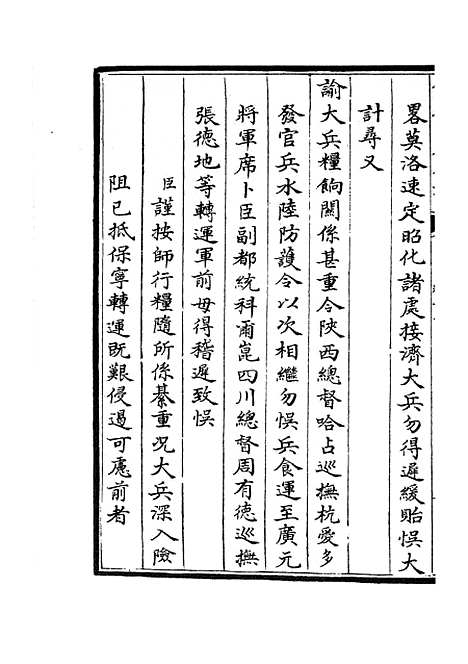 畧莫洛速定昭化諸處接濟大兵勿得遲緩貽悞大
計尋又
諭大兵糧餉關係甚重令陝西總督哈占巡撫杭愛多
發官兵水陸防護令以次相繼勿悞兵食運至廣元
將軍席卜臣副都統科爾崑四川總督周有德巡撫
張德地等轉運軍前毋得稽遲致悞
臣謹按師行糧隨所係綦重况大兵深入險
阻已抵保寧轉運既艱侵遏可慮前者